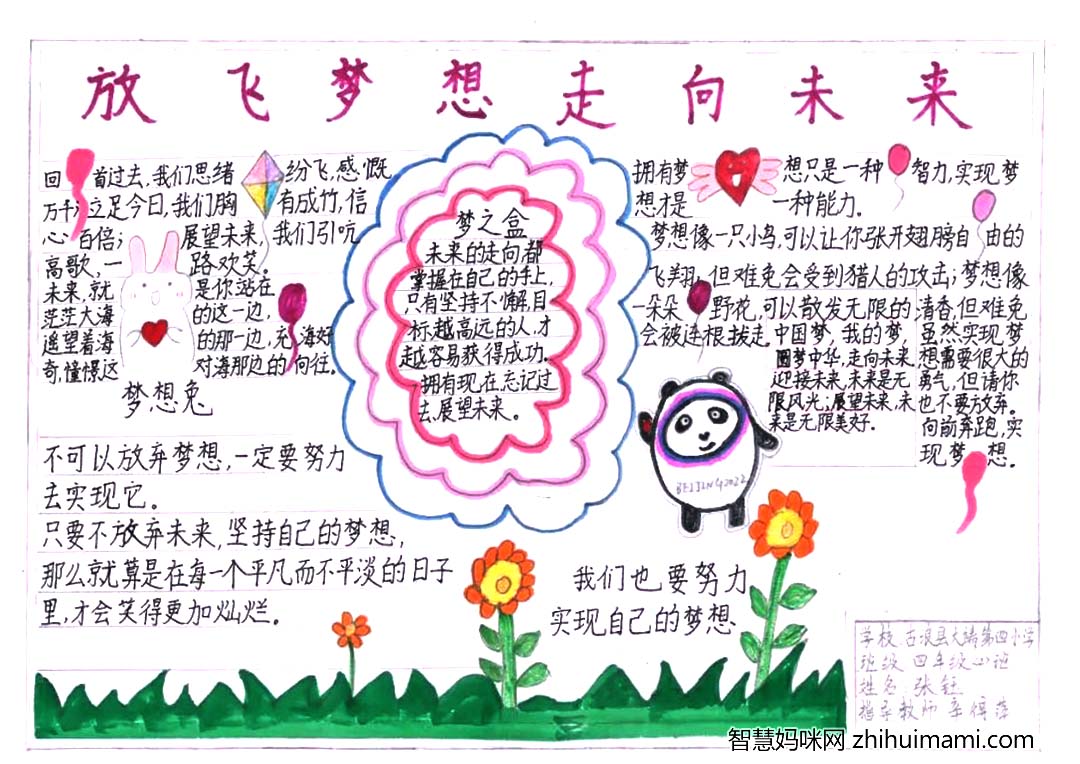 放飞梦想走向未来
回首过去,我们思绪纷飞,感慨
万千;立足今日,我们胸有成竹,信
心百倍;展望未来,我们引吭
高歌,一路欢笑。
未来,就是你站在
茫茫大海的这一边,
遥望着海的那一边,充满好
奇,憧憬这对海那边的向往。
梦想兔
不可以放弃梦想,一定要努力
去实现它。
只要不放弃未来,坚持自己的梦想,
那么就算是在每一个平凡而不平淡的日子
里,才会笑得更加灿烂。
梦之盒
未来的走向,都
掌握在自己的手上,
只有坚持不懈,目
标越高远的人,才
越容易获得成功。
拥有现在忘记过
去,展望未来。
拥有梦想只是一种智力,实现梦
想才是一种能力。
梦想像一只小鸟,可以让你张开翅膀自由的
飞翔,但难免会受到猎人的攻击;梦想像
一朵朵野花,可以散发无限的清香,但难免
会被连根拔走。
中国梦,我的梦,
圆梦中华,走向未来,
迎接未来,未来是无
限风光;展望未来,未
来是无限美好。
虽然实现梦
想需要很大的
勇气,但请你
也不要放弃。
向前奔跑,实
现梦想。
BEIJING2022
我们也要努力
实现自己的梦想
学校 古浪县大靖第四小学
班级 四年级(1)班
姓名 张钰
指导教师
智慧妈咪网 zhihuimami.com